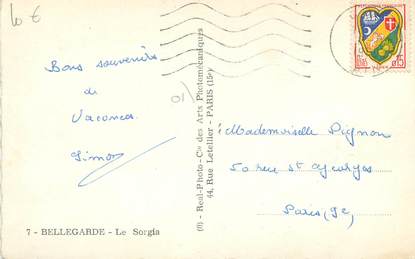 10 €
Bons souvenirs
de
Vacances
Simon
01
7 - BELLEGARDE - Le Sorgia
(6) - Real-Photo - Cie des Arts Photomécaniques
44, Rue Letellier - PARIS (15e)
0,15
Mademoiselle Pignon
50 rue St Georges
Paris (9e)